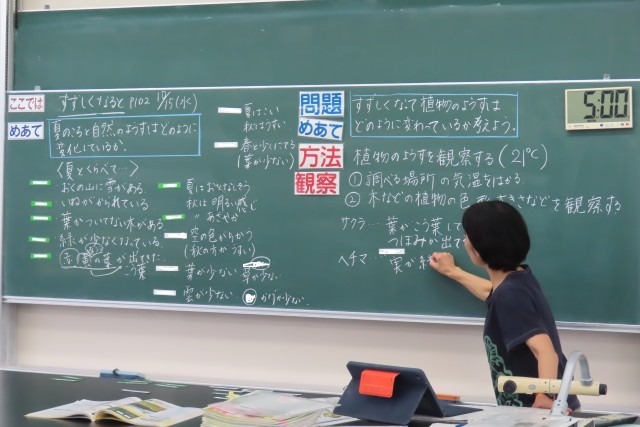 ここでは
すずしくなると P102 10/15(水)
めあて
夏のころと自然のようすはどのように
変化しているか。
〈夏とくらべて…〉
おくの山に雪がある
いねがかられている
葉がついてない木がある
緑が少なくなっている
葉が出てきた
こう葉
夏はこい
秋はうすい
春が少しにてる
(葉が少ない)
秋は明るい感じ
〃 あざやか
空の色がちがう
(秋の方がうすい)
葉が少ない
雲が少ない
が少ない
問題
めあて
方法
観察
すずしくなって植物のようすは
どのように変わっているか考えよう。
植物のようすを観察する(21℃)
①調べる場所の気温をはかる
②木などの植物の色や などを観察する
サクラ…葉がこう葉して
つぼみが出て
ヘチマ…
実が
5:00